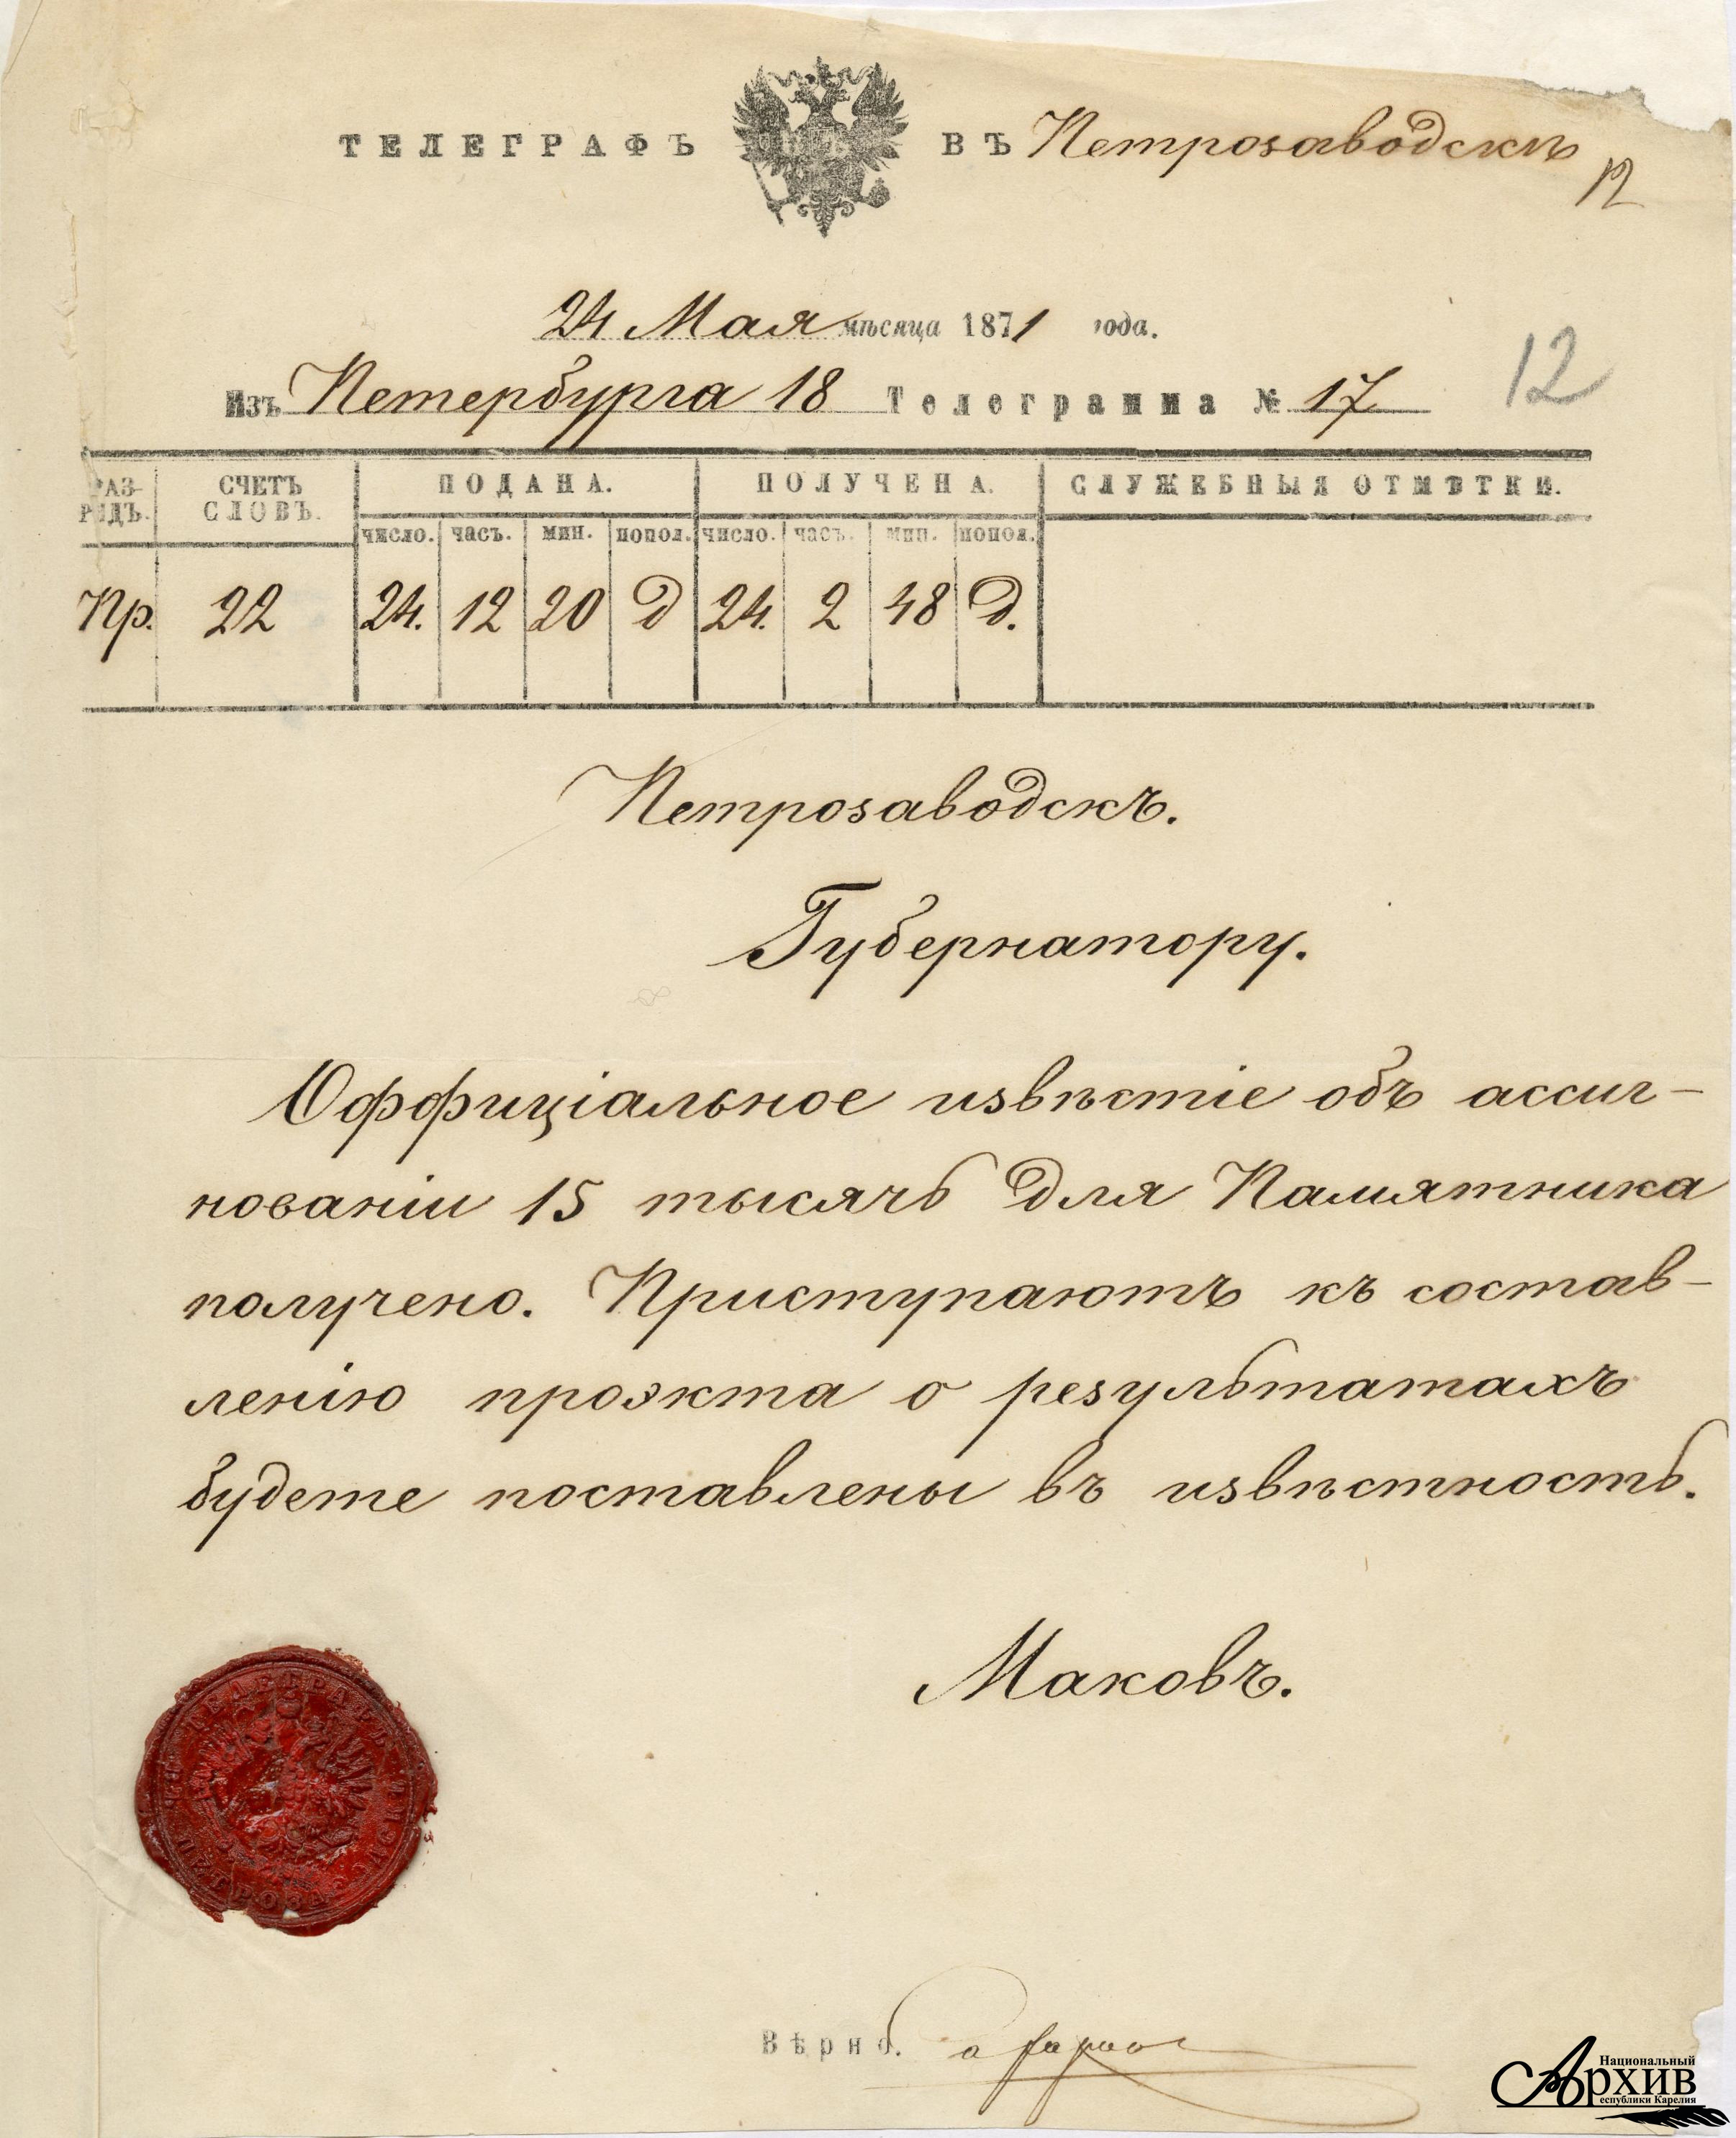 ТЕЛЕГРАФЪ ВЪ Петрозаводскѣ
12
24 Мая мѣсяца 1871 года.
Изъ Петербурга 18 Телеграмма № 17
12
РАЗ-
РЯДЪ.
СЧЕТЪ
СЛОВЪ.
ПОДАНА. ПОЛУЧЕНА. СЛУЖЕБНЫЯ ОТМѢТКИ.
число. часъ. мин. попол. число. часъ. мин. попол.
Пр. 22 24. 12 20 д 24. 2 48 д.
Петрозаводскъ.
Губернатору.
Оффиціальное извѣстіе объ ассиг-
нованіи 15 тысячъ для Памятника
получено. Приступаютъ къ состав-
ленію проэкта о результатахъ
будете поставлены въ извѣстность.
Маковъ.
Вѣрно.
Национальный
Архив
Республики Карелия